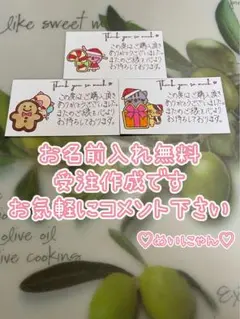 like sweet mo
Thank you so much
この度はご購入頂き
ありがとうございました。
またご縁がありますよう
お待ちしております。
Thank you so much
この度はご購入頂き
ありがとうございました。
またご縁がありますよう
お待ちしております。
Thank you so much
この度はご購入頂き
ありがとうございました。
お待ちしております。
お名前入れ無料
受注作成です
お気軽にコメント下さい
♡めいにゃん♡
olive oil
ve cooking